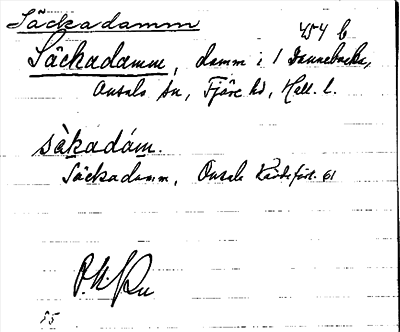 Säckadamm
454 b
Säckadamm, damm i 1 Dannebacka,
Onsala sn, Fjäre hd, Hall. l.
sàkadám.
Säckadamm, Onsala Kårtsfört. 61